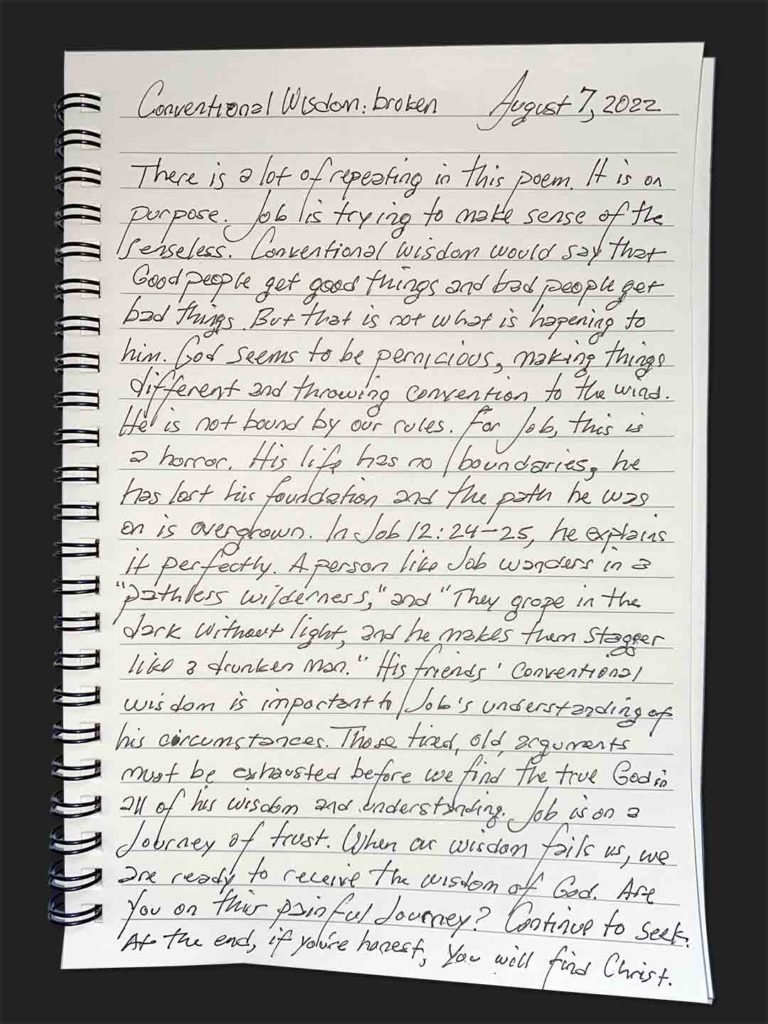 Conventional Wisdom: broken August 7, 2022
There is a lot of repeating in this poem. It is on
purpose. Job is trying to make sense of the
senseless. Conventional wisdom would say that
Good people get good things and bad people get
bad things. But that is not what is hapening to
him. God seems to be pernicious, making things
different and throwing convention to the wind.
He is not bound by our rules. For Job, this is
a horror. His life has no boundaries, he
has lost his foundation and the path he was
on is overgrown. In Job 12:24-25, he explains
it perfectly. A person like Job wanders in a
"pathless wilderness," and "They grope in the
dark without light, and he makes them stagger
like a drunken man." His friends' conventional
wisdom is important to Job's understanding of
his circumstances. Those tired, old, arguments
must be exhausted before we find the true God in
all of his wisdom and understanding. Job is on a
Journey of trust. When our wisdom fails us, we
are ready to receive the wisdom of God. Are
you on this painful Journey? Continue to seek.
At the end, if you're honest, you will find Christ.